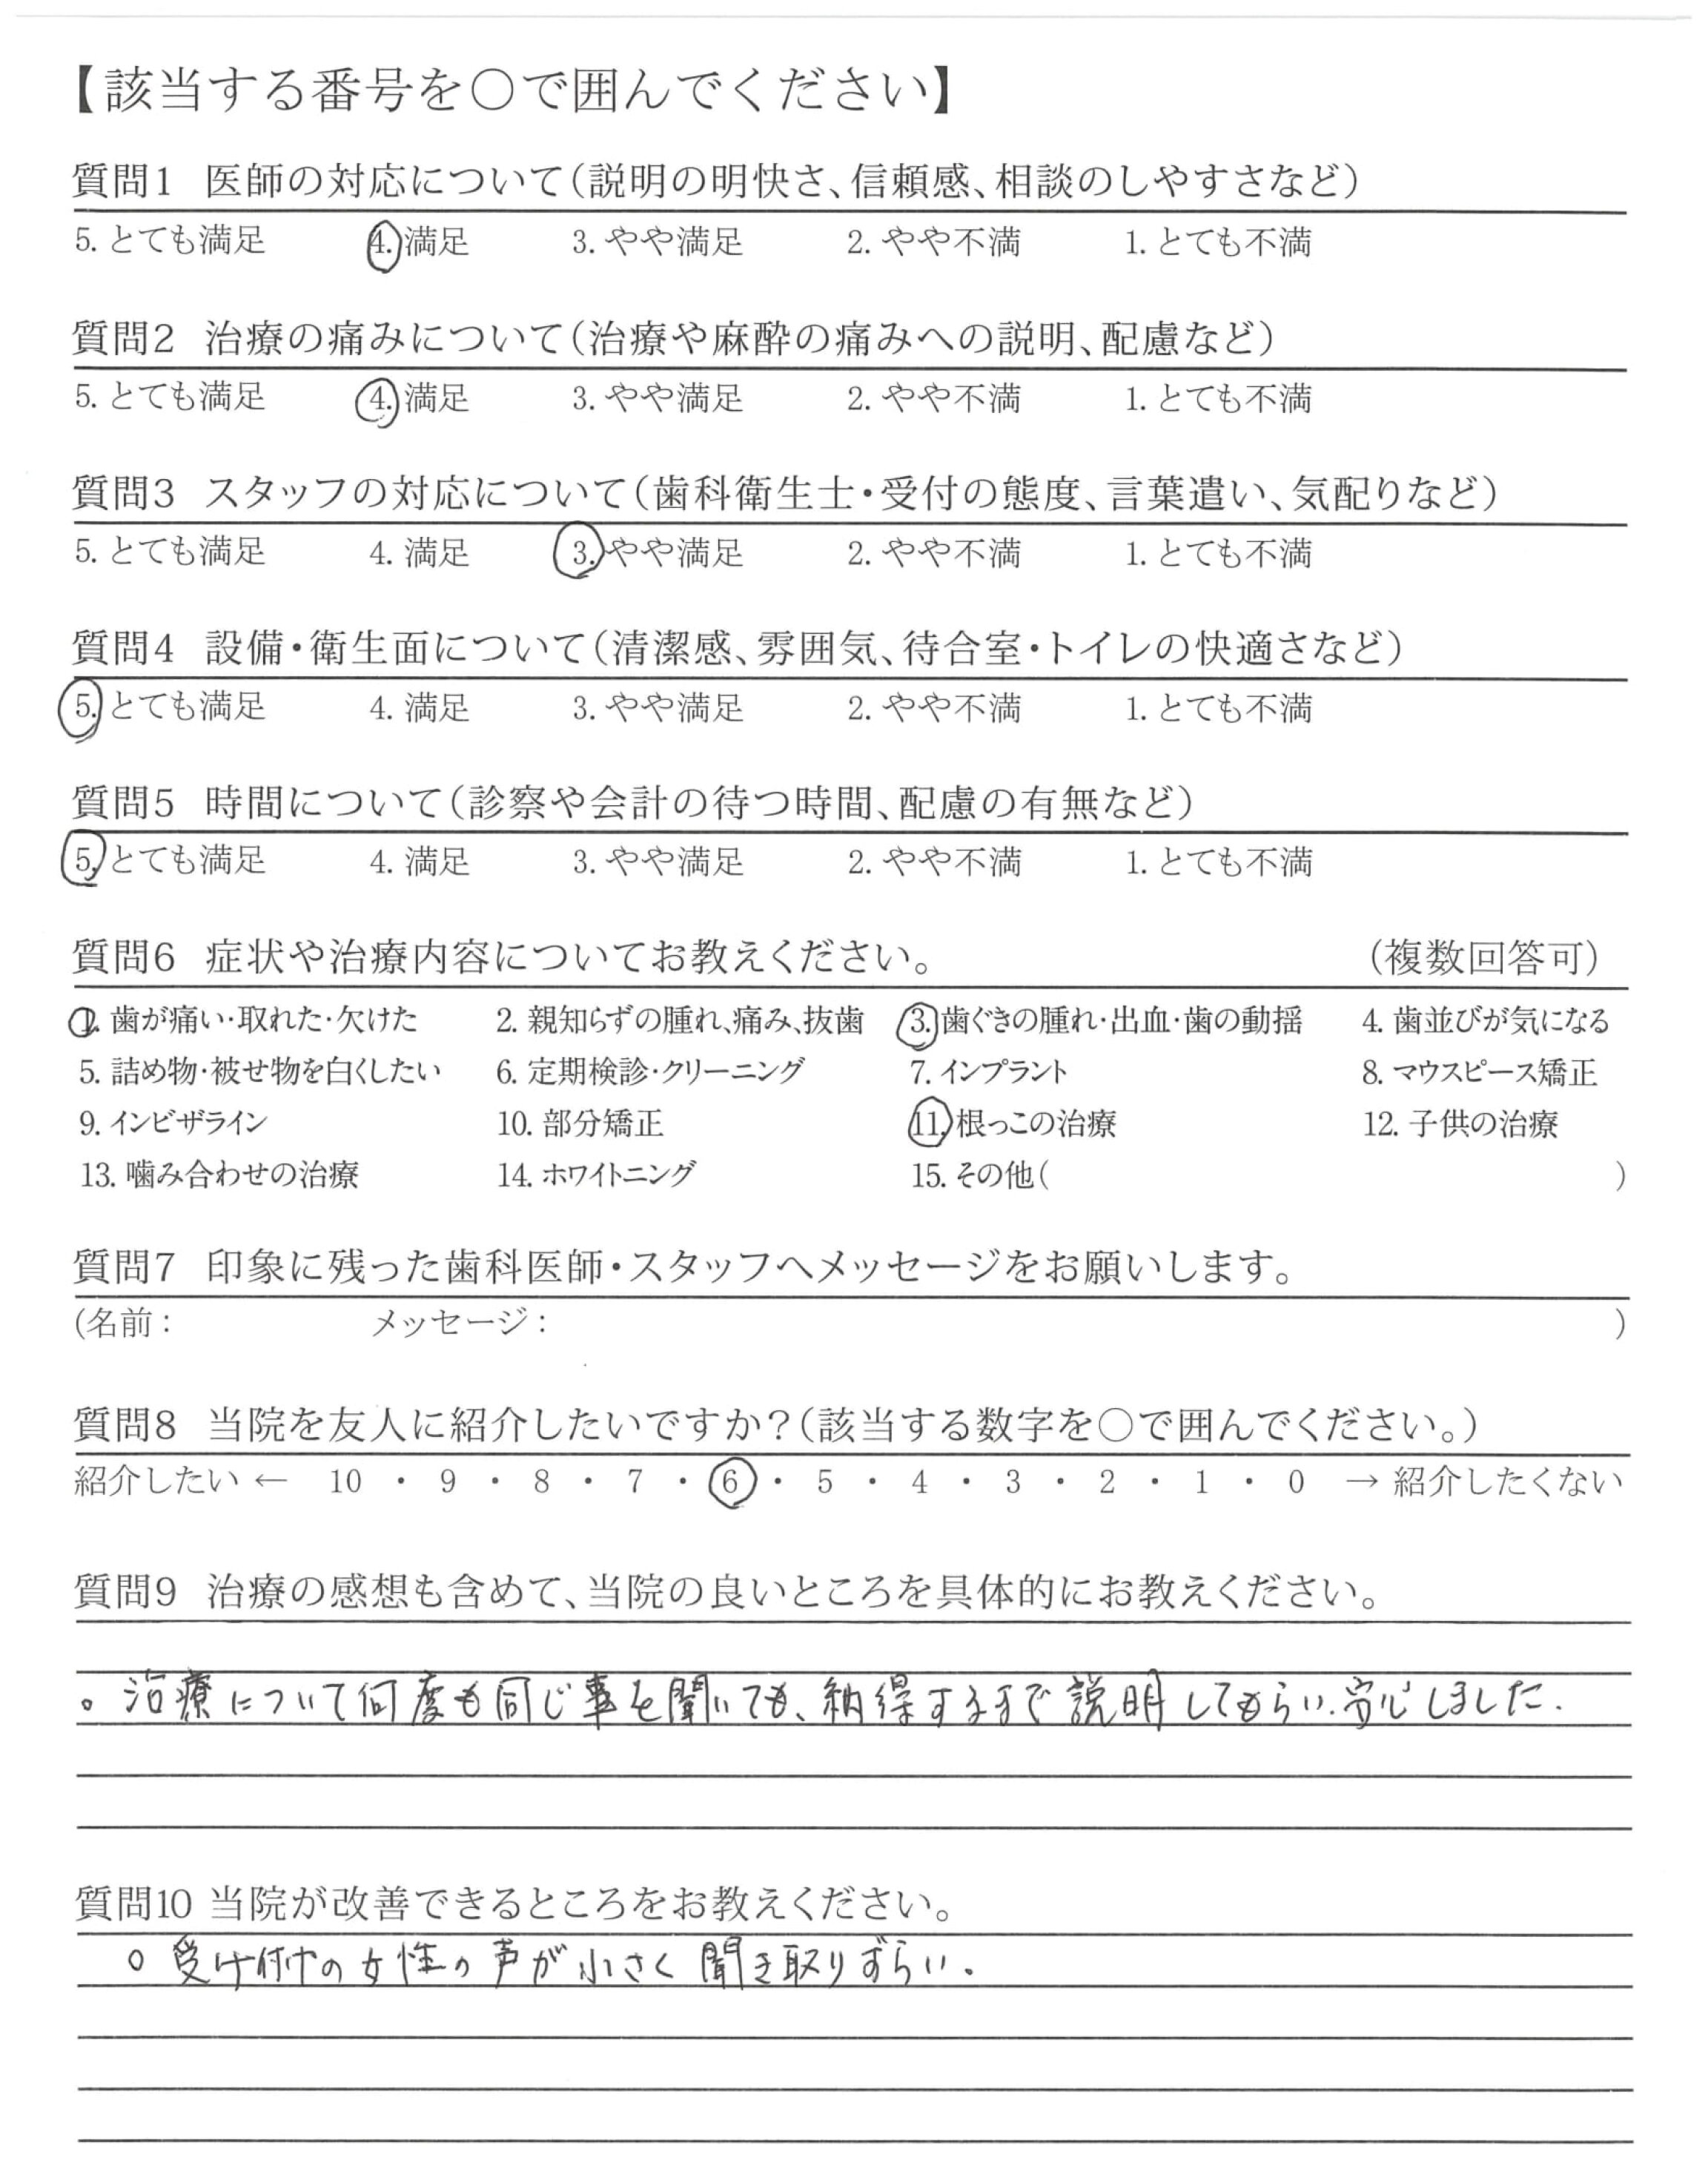 【該当する番号を○で囲んでください】
質問1 医師の対応について(説明の明快さ、信頼感、相談のしやすさなど)
5. とても満足 4. 満足 3. やや満足 2. やや不満 1. とても不満
質問2 治療の痛みについて(治療や麻酔の痛みへの説明、配慮など)
5. とても満足 4. 満足 3. やや満足 2. やや不満 1. とても不満
質問3 スタッフの対応について(歯科衛生士・受付の態度、言葉遣い、気配りなど)
5. とても満足 4. 満足 3. やや満足 2. やや不満 1. とても不満
質問4 設備・衛生面について(清潔感、雰囲気、待合室・トイレの快適さなど)
5. とても満足 4. 満足 3. やや満足 2. やや不満 1. とても不満
質問5 時間について(診察や会計の待つ時間、配慮の有無など)
5. とても満足 4. 満足 3. やや満足 2. やや不満 1. とても不満
質問6 症状や治療内容についてお教えください。 (複数回答可)
1. 歯が痛い・取れた・欠けた 2. 親知らずの腫れ、痛み、抜歯 3. 歯ぐきの腫れ・出血・歯の動揺 4. 歯並びが気になる
5. 詰め物・被せ物を白くしたい 6. 定期検診・クリーニング 7. インプラント 8. マウスピース矯正
9. インビザライン 10. 部分矯正 11. 根っこの治療 12. 子供の治療
13. 噛み合わせの治療 14. ホワイトニング 15. その他( )
質問7 印象に残った歯科医師・スタッフへメッセージをお願いします。
(名前: メッセージ: )
質問8 当院を友人に紹介したいですか?(該当する数字を○で囲んでください。)
紹介したい ← 10 ・ 9 ・ 8 ・ 7 ・ 6 ・ 5 ・ 4 ・ 3 ・ 2 ・ 1 ・ 0 → 紹介したくない
質問9 治療の感想も含めて、当院の良いところを具体的にお教えください。
。治療について何度も同じ事を聞いても、納得するまで説明してもらい、安心しました.
質問10 当院が改善できるところをお教えください。
○ 受け付けの女性の声が小さく聞き取りずらい.